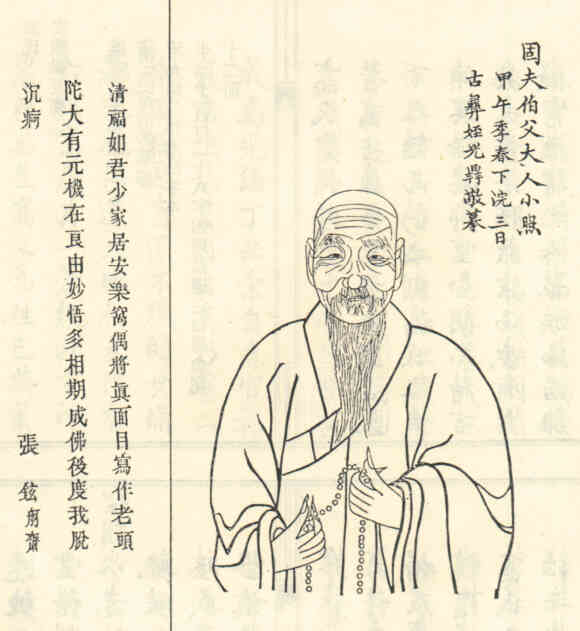 固夫伯父大人小照
甲午季春下浣三日
古彝姪光敬摹
清福如君少家居安樂窩偶將眞面目寫作老頭
陀大有元機在良由妙悟多相期成佛後度我脫
沉痾
張鉉齋